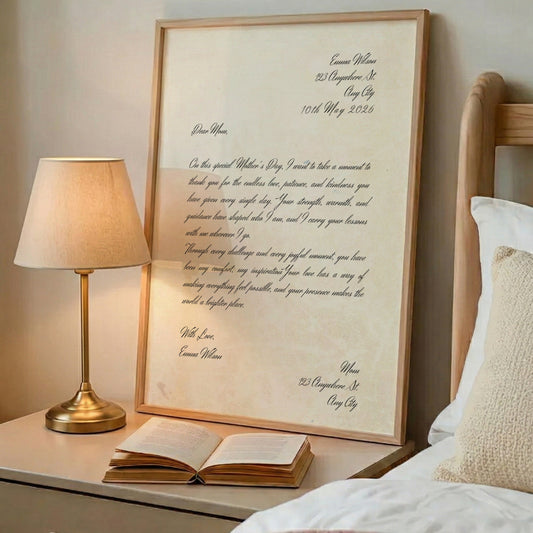 Emma Wilson
123 Anywhere St.
Any City
10th May 2026
Dear Mom,
On this special Mother's Day, I want to take a moment to
thank you for the endless love, patience, and kindness you
have given every single day. Your strength, warmth, and
guidance have shaped who I am, and I carry your lessons
with me wherever I go.
Through every challenge and every joyful moment, you have
been my comfort, my inspiration. Your love has a way of
making everything feel possible, and your presence makes the
world a brighter place.
With Love,
Emma Wilson
Mom
123 Anywhere St.
Any City